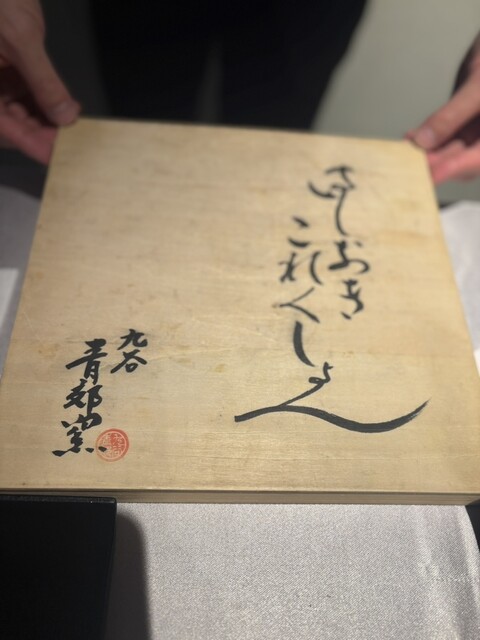 はしおき
これくしょん
九谷
青郊窯